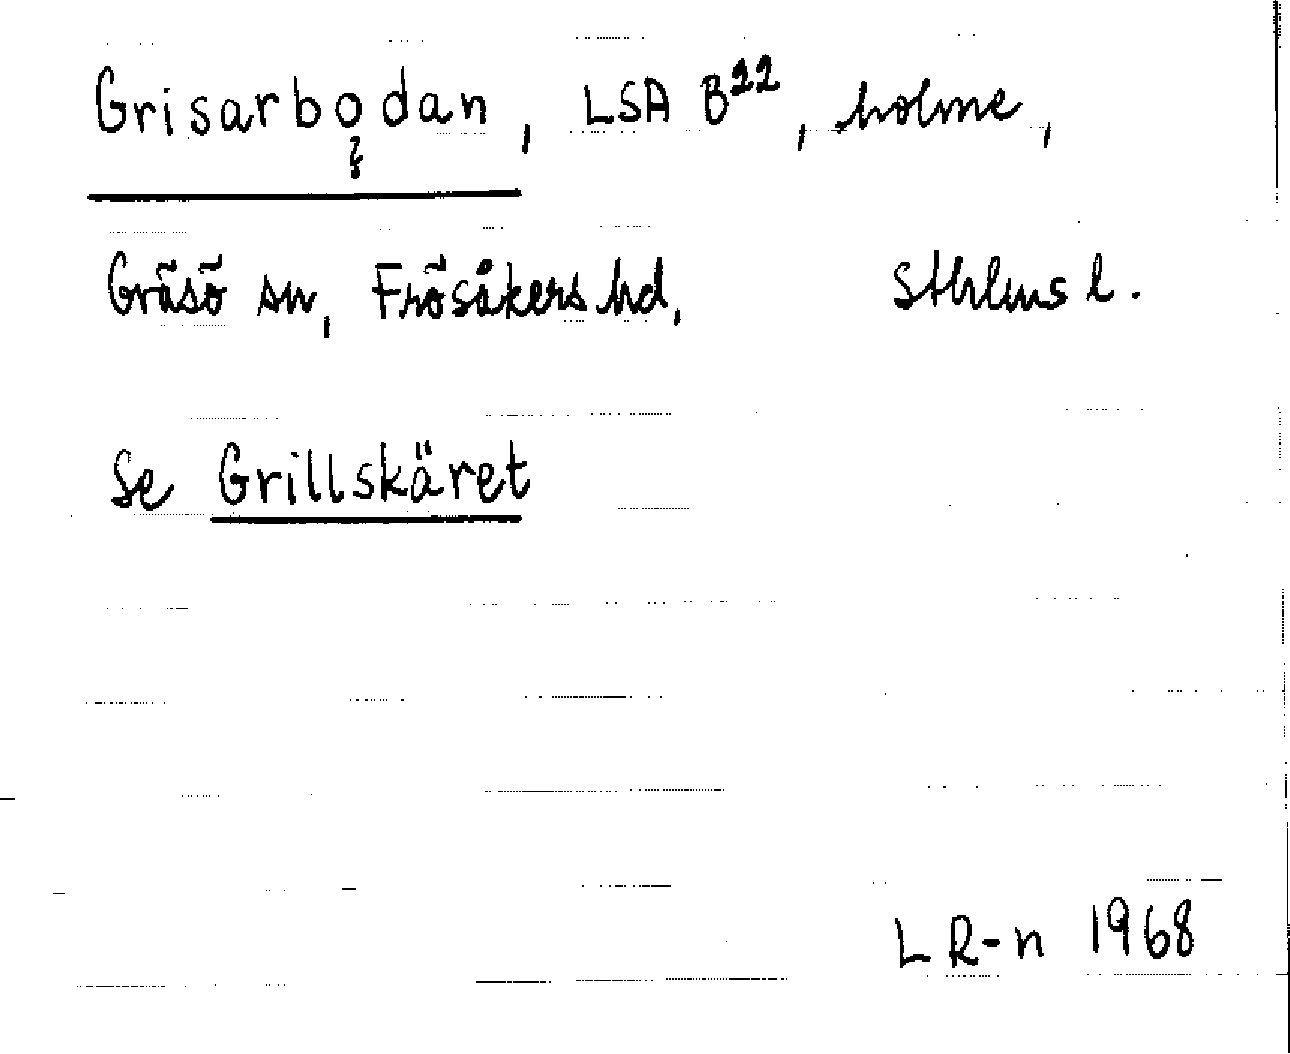 Grisarbodan, LSA B22, holme,
Gräsö sn, Frösåkers hd, Sthlms l.
Se Grillskäret
L R-n 1968